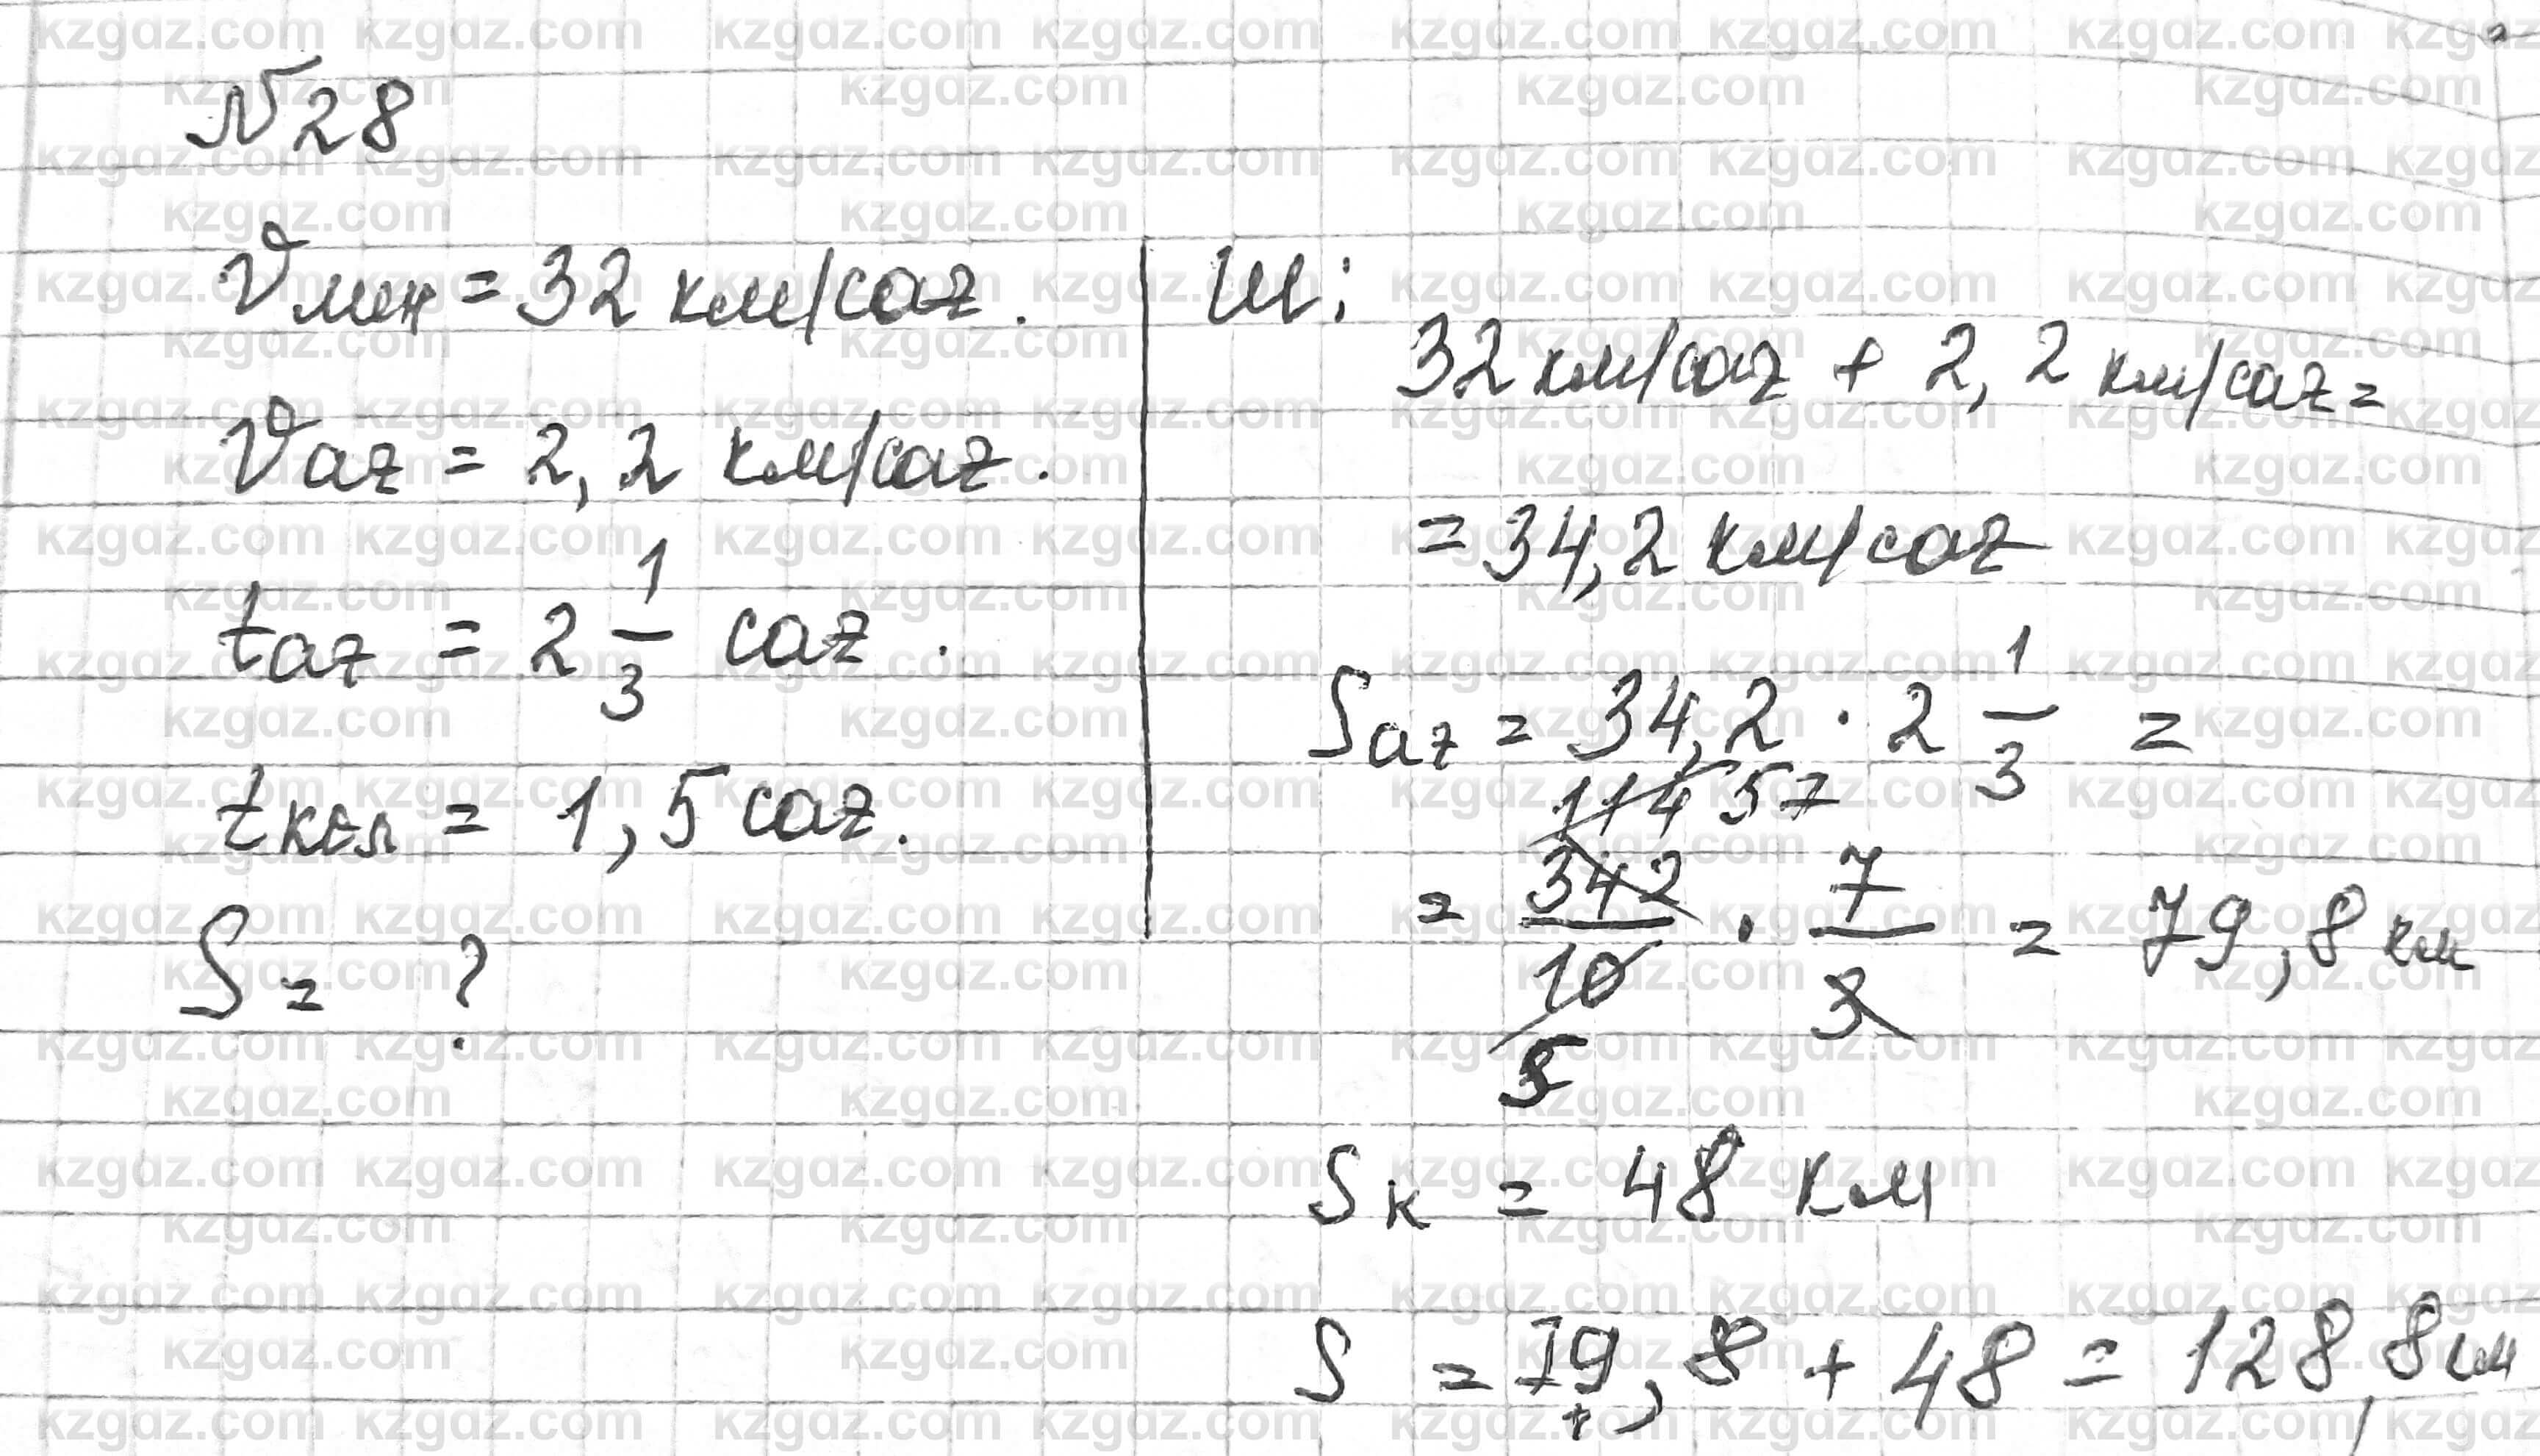 №28
Vмен = 32 км/саг.
Vаг = 2,2 км/саг.
tаг = 2 1/3 саг.
tкөл = 1,5 саг.
S = ?
Ш:
32 км/саг + 2,2 км/саг =
= 34,2 км/саг
Sаг = 34,2 · 2 1/3 =
114 57
= 342/10 · 7/3 = 79,8 км
5
Sк = 48 км
S = 79,8 + 48 = 128,8 км
kzgaz.com